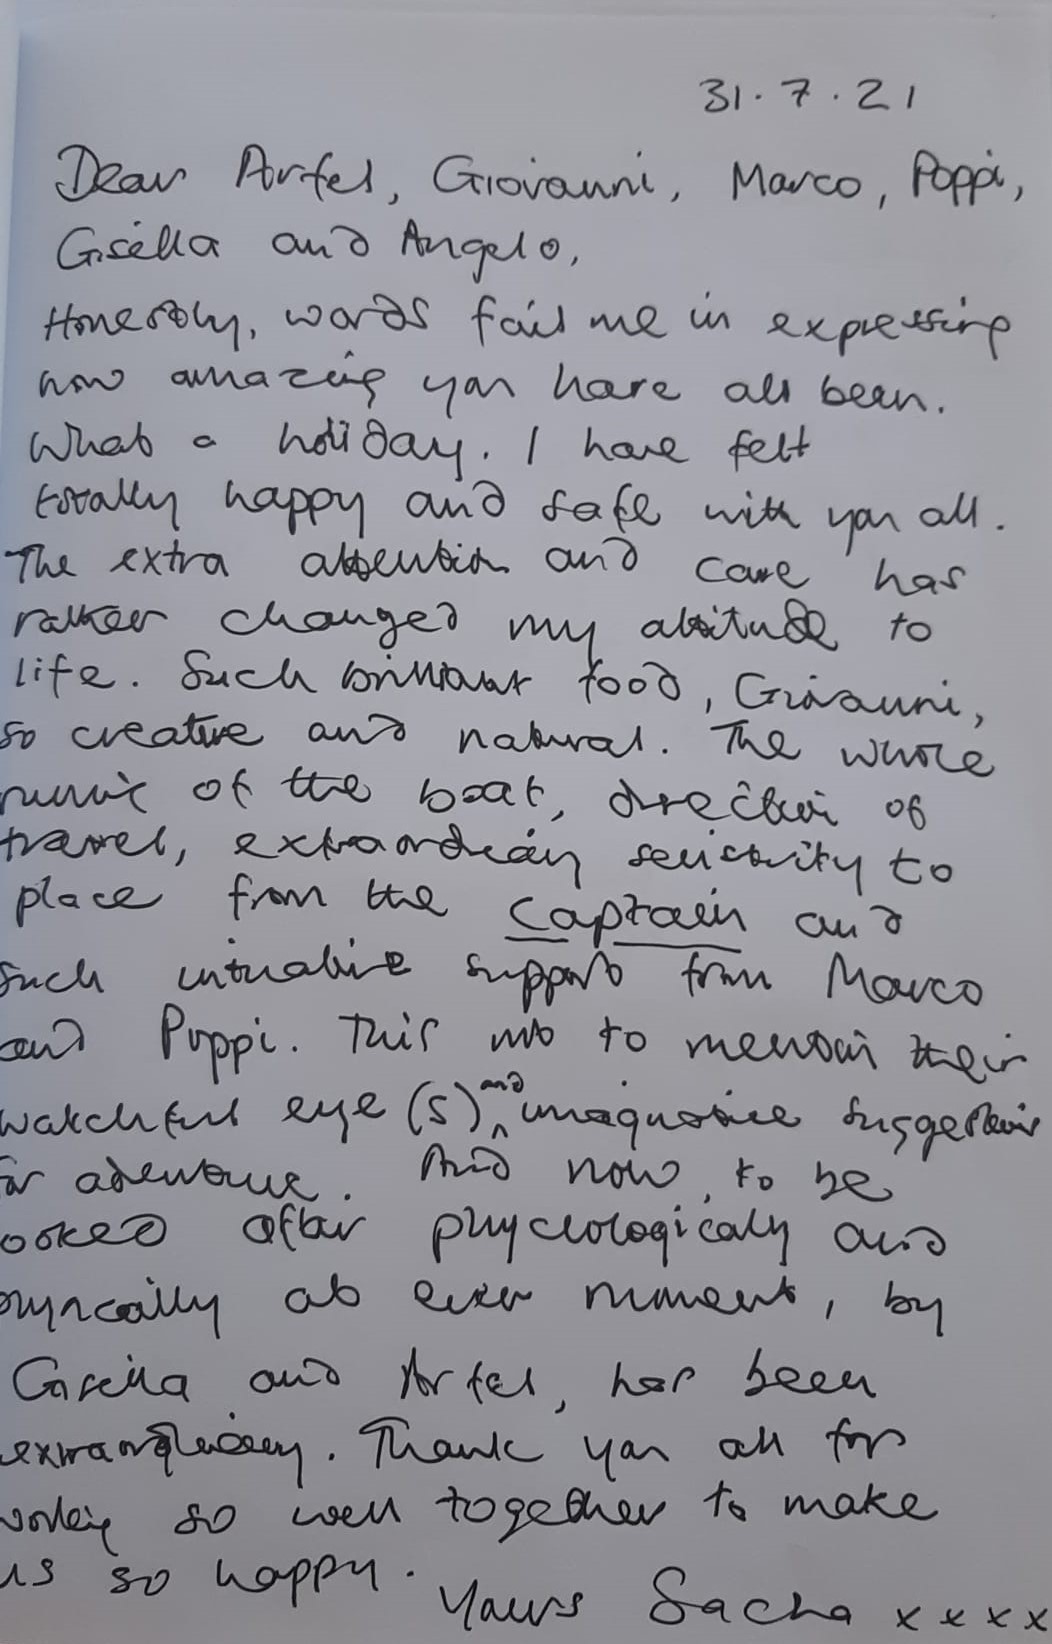 31.7.21
Dear Artel, Giovanni, Marco, Poppi,
Gisella and Angelo,
Honestly, words fail me in expressing
how amazing you have all been.
What a holiday. I have felt
totally happy and safe with you all.
The extra attention and care has
rather changed my attitude to
life. Such brilliant food, Giovanni,
so creative and natural. The whole
music of the boat, direction of
travel, extraordinary sensitivity to
place from the Captain and
such intuative support from Marco
and Poppi. This not to mention their
watchful eye (s) and imaginative suggestions
for adventure. And now, to be
ooked after phycologicaly and
physically at every moment, by
Gisella and Artel, has been
extraordinary. Thank you all for
working so well together to make
us so happy.
Yours Sacha x x x x